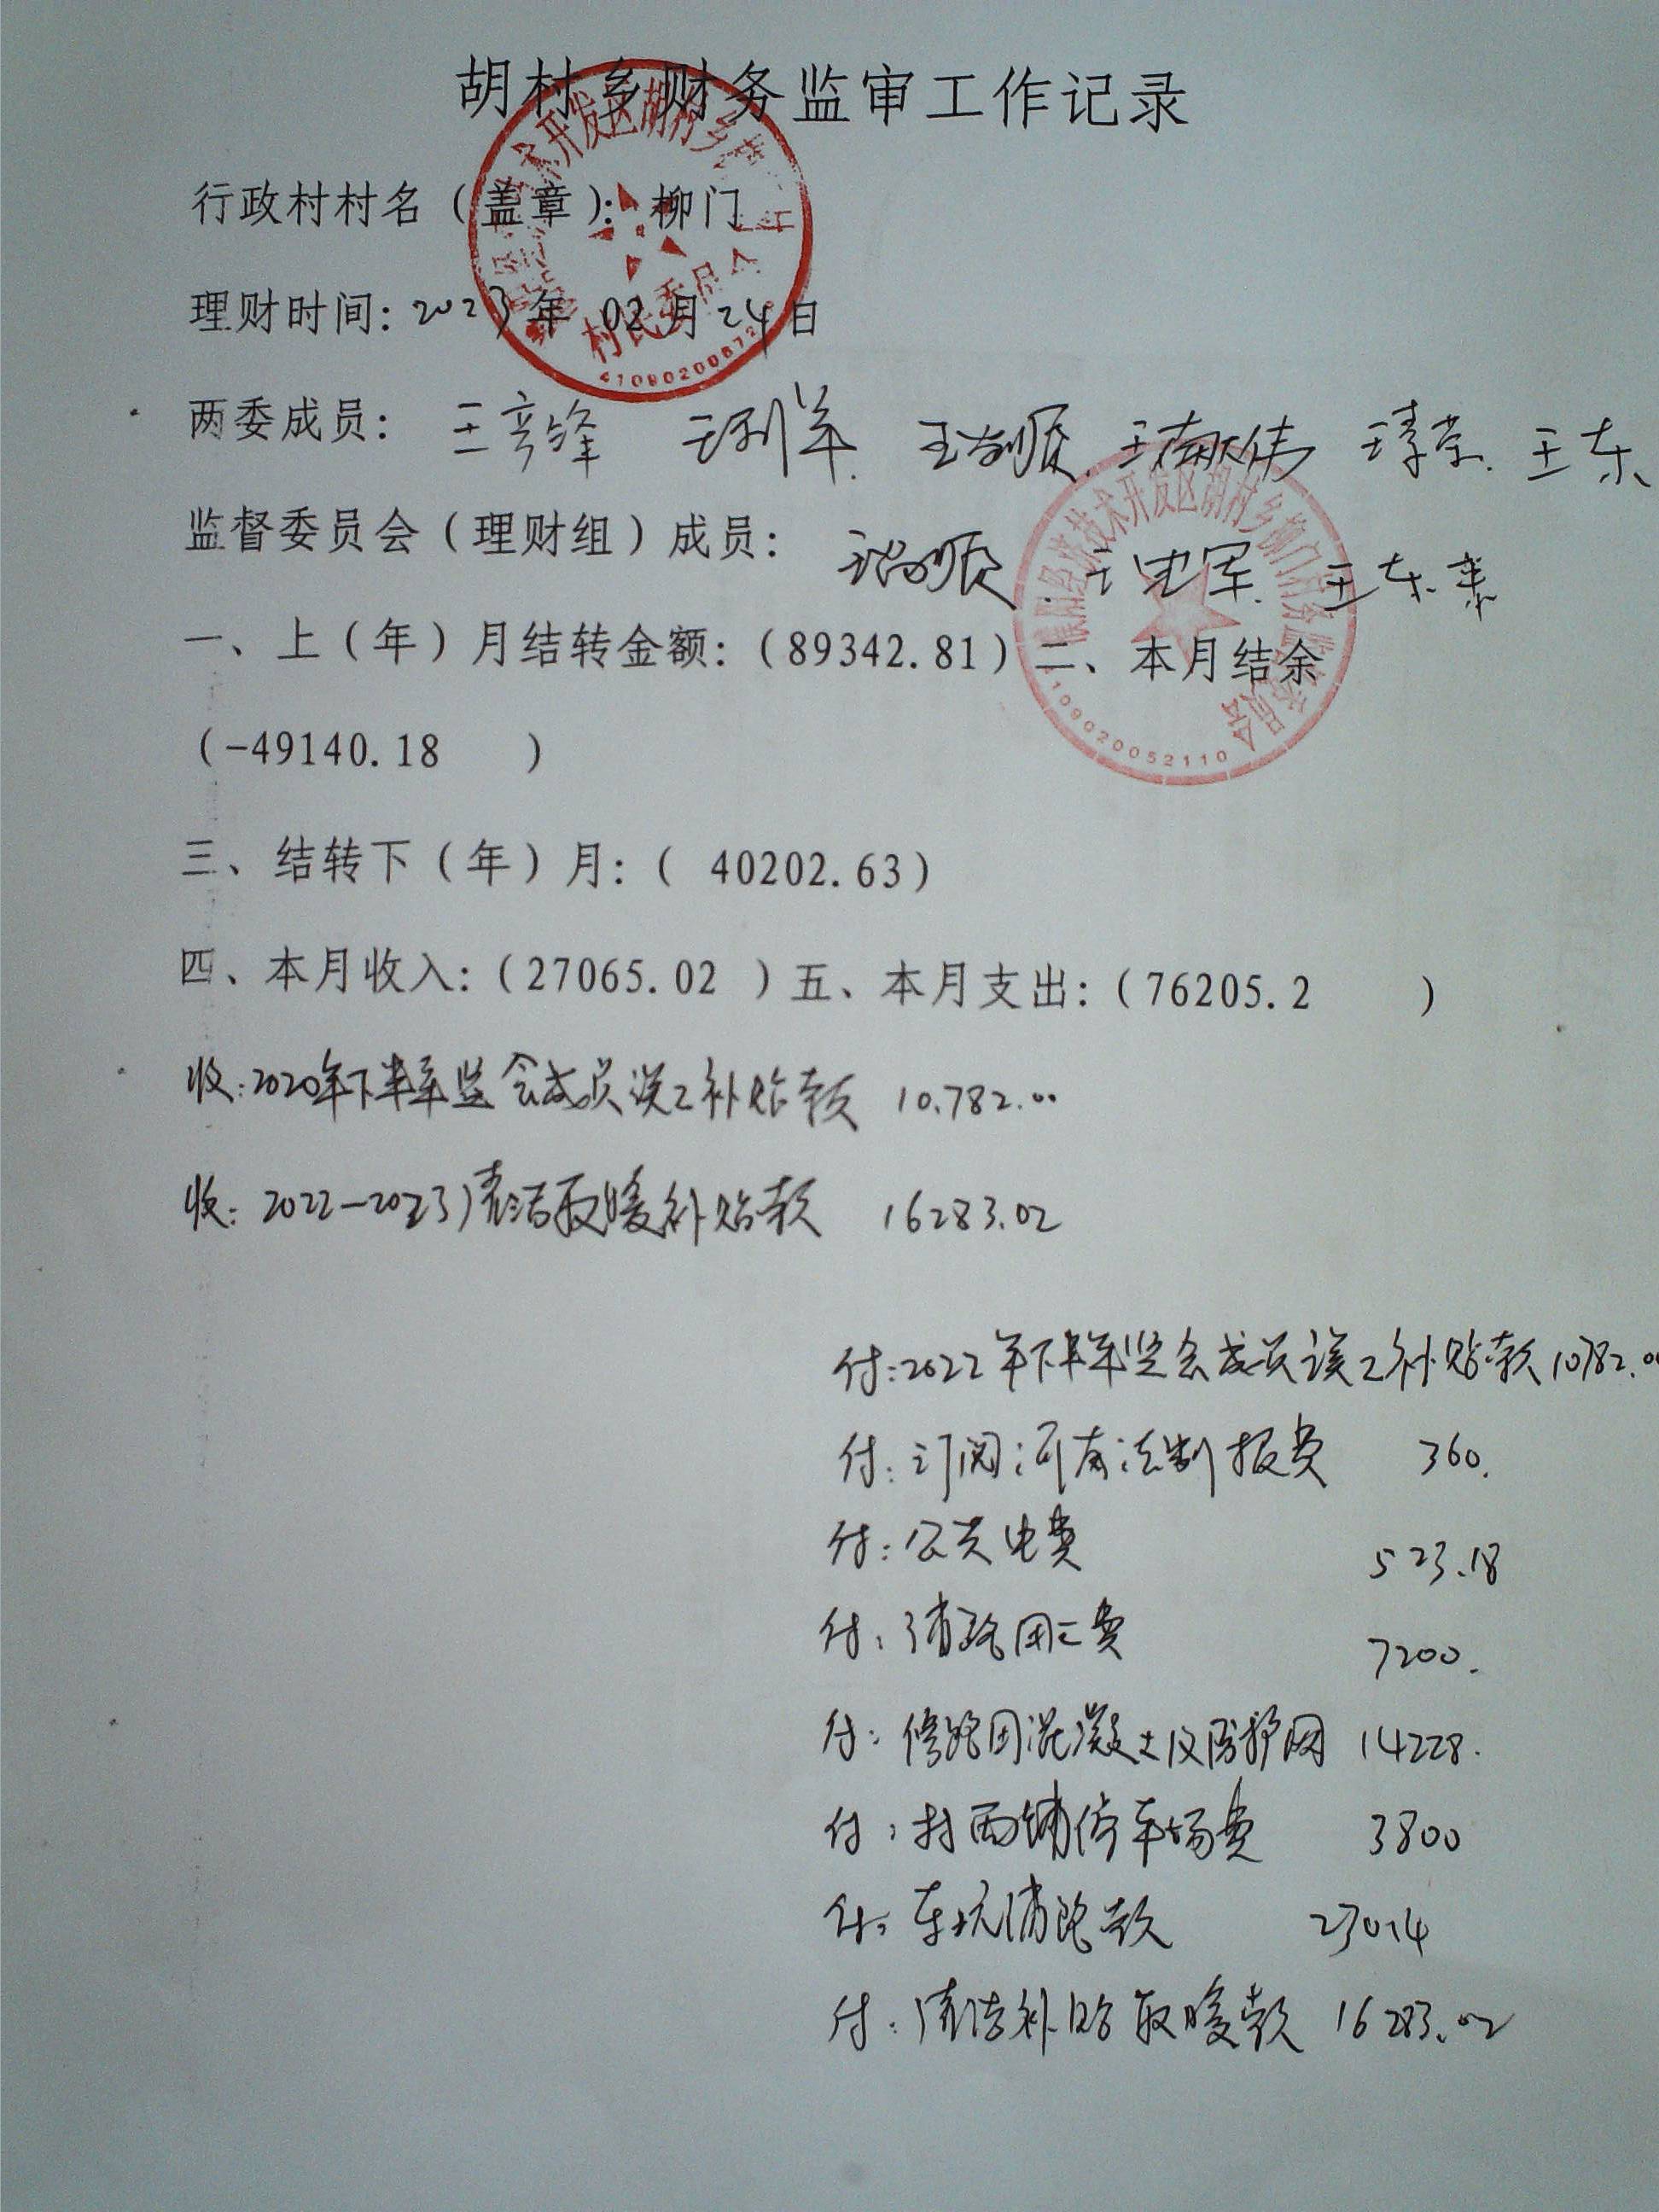 胡村乡财务监审工作记录
行政村村名（盖章）：柳门
理财时间：2023年 02月24日
两委成员：王彦锋 王瑞顺 王献伟 王东
监督委员会（理财组）成员：王瑞顺 王史军 王东来
一、上（年）月结转金额：（89342.81）二、本月结余
（-49140.18 ）
三、结转下（年）月：（ 40202.63）
四、本月收入：（27065.02 ）五、本月支出：（76205.2 ）
收：2020年下半年监会成员误工补贴款 10.782.00
收：2022-2023清洁取暖补贴款 16283.02
付：2022年下半年监会成员误工补贴款10782.00
付：订阅河南法制报费 360.
付：公共电费 523.18
付：清路用工费 7200.
付：修路用混凝土及防护网 14228.
付：村西铺停车场费 3800
付：东坑铺路款 23014
付：清洁补贴取暖款 16283.02
村民委员会
4109020052110